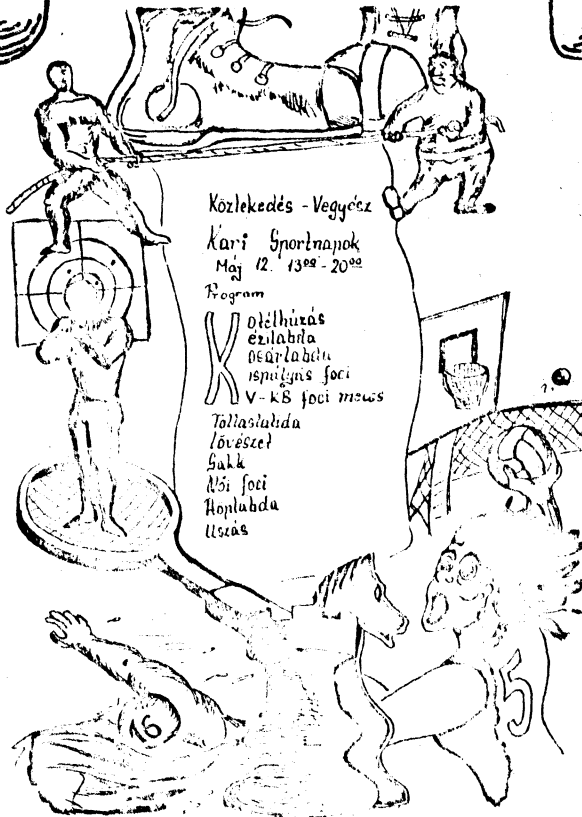 Közlekedés - Vegyész
Kari Sportnapok
Máj 12. 13⁰⁰ - 20⁰⁰
Program
Kötélhúzás
Kézilabda
Kosárlabda
Kispályás foci
KV-KB foci meccs
Tollaslabda
Lövészet
Sakk
Női foci
Röplabda
Úszás
16
5